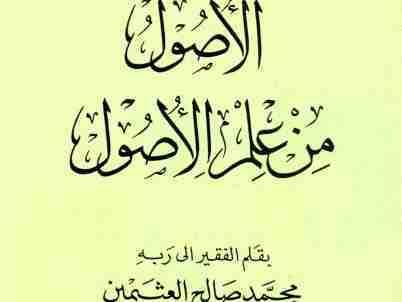 الأُصُول
مِنْ عِلْمِ الأُصُول
بقَلم الفقير الى رَبهِ
محمّد صَالح العثيمين